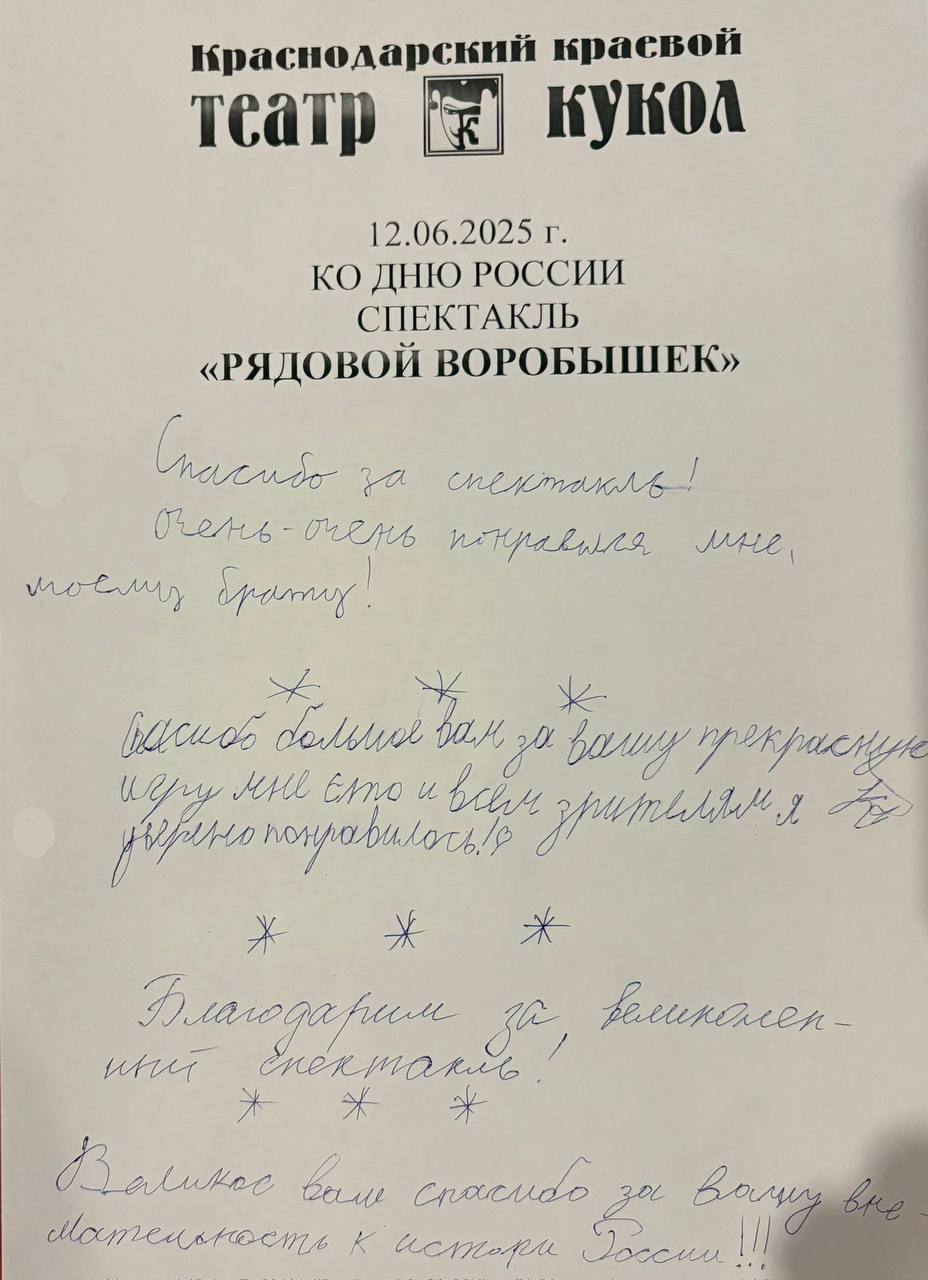 Краснодарский краевой
театр К кукол
12.06.2025 г.
КО ДНЮ РОССИИ
СПЕКТАКЛЬ
«РЯДОВОЙ ВОРОБЫШЕК»
Спасибо за спектакль!
Очень-очень понравился мне,
моему брату!
* * *
большое вам за вашу прекрасную
игру мне ето и всем зрителям я
уверено понравилось!♡
* * *
Благодарим за великолеп-
ний спектакль!
* * *
Великое вам спасибо за Вашу вне-
мательность к истори России!!!